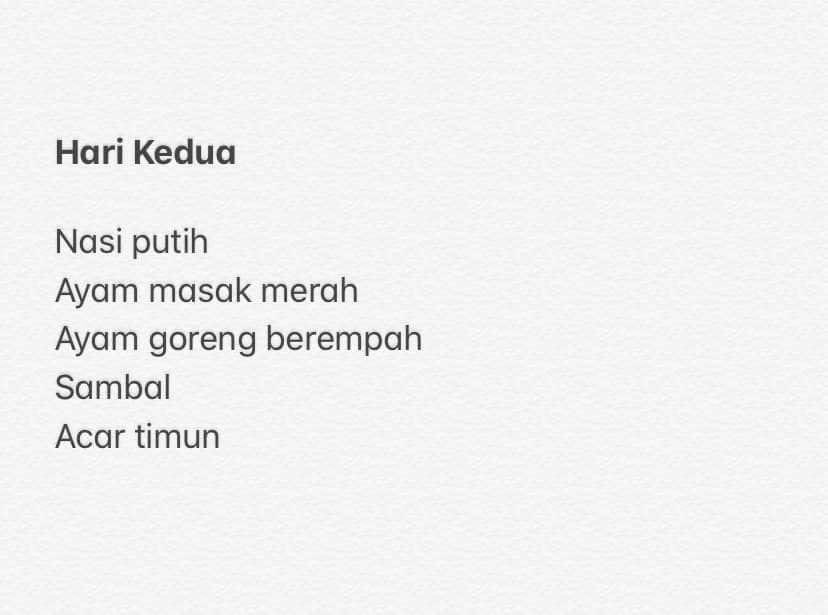 Hari Kedua
Nasi putih
Ayam masak merah
Ayam goreng berempah
Sambal
Acar timun